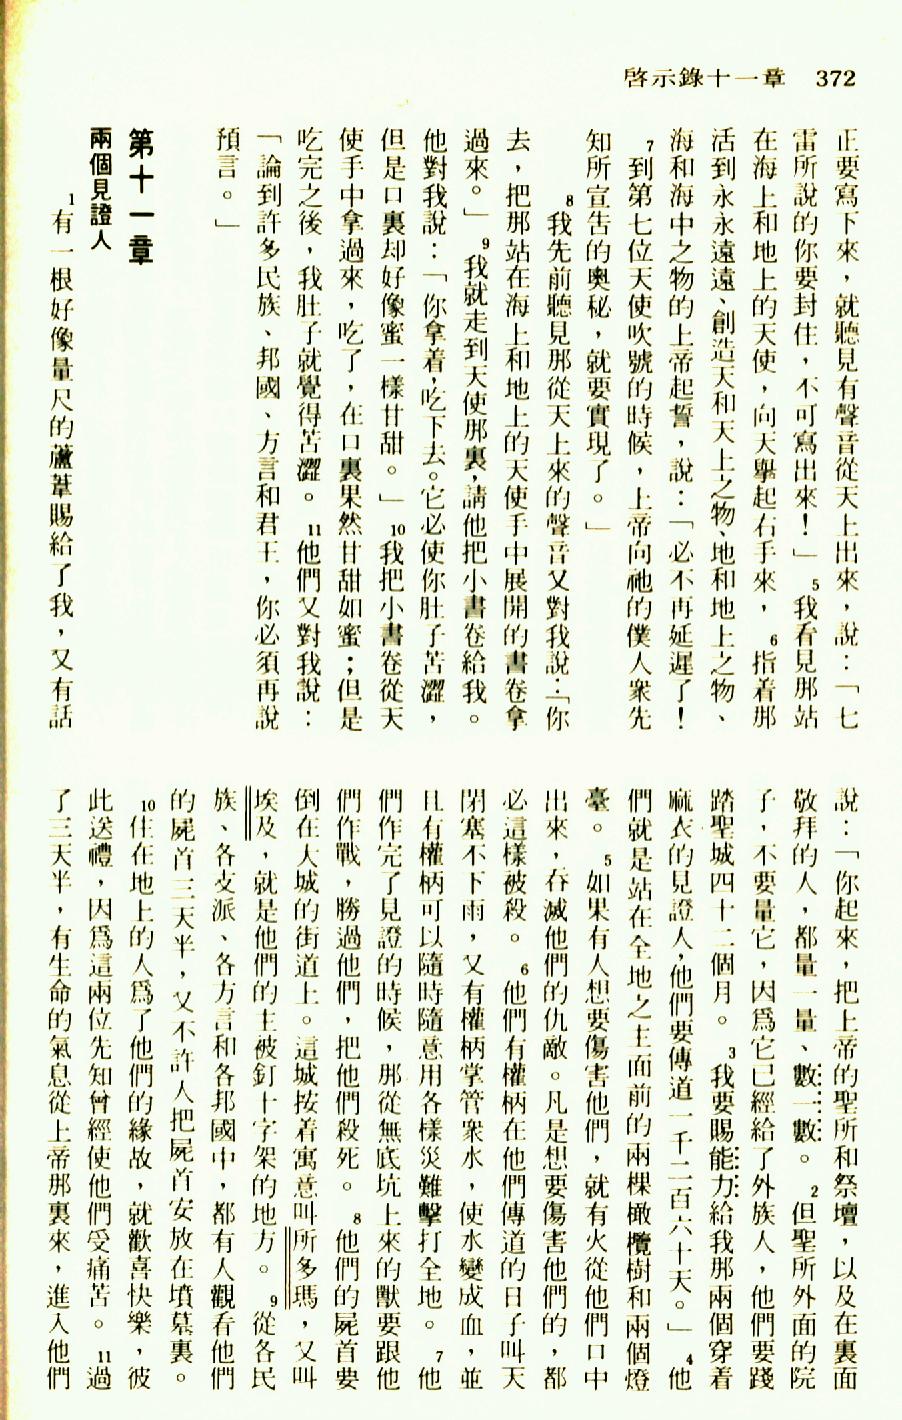 啓示錄十一章　372
正要寫下來，就聽見有聲音從天上出來，說：「七
雷所說的你要封住，不可寫出來！」 5 我看見那站
在海上和地上的天使，向天舉起右手來， 6 指着那
活到永永遠遠、創造天和天上之物、地和地上之物、
海和海中之物的上帝起誓，說：「必不再延遲了！
7 到第七位天使吹號的時候，上帝向祂的僕人衆先
知所宣告的奧秘，就要實現了。」
8 我先前聽見那從天上來的聲音又對我說：「你
去，把那站在海上和地上的天使手中展開的書卷拿
過來。」 9 我就走到天使那裏，請他把小書卷給我。
他對我說：「你拿着，吃下去。它必使你肚子苦澀，
但是口裏却好像蜜一樣甘甜。」 10 我把小書卷從天
使手中拿過來，吃了，在口裏果然甘甜如蜜；但是
吃完之後，我肚子就覺得苦澀。 11 他們又對我說：
「論到許多民族、邦國、方言和君王，你必須再說
預言。」
第十一章
兩個見證人
1 有一根好像量尺的蘆葦賜給了我，又有話
說：「你起來，把上帝的聖所和祭壇，以及在裏面
敬拜的人，都量一量、數一數。 2 但聖所外面的院
子，不要量它，因爲它已經給了外族人，他們要踐
踏聖城四十二個月。 3 我要賜能力給我那兩個穿着
麻衣的見證人，他們要傳道一千二百六十天。」 4 他
們就是站在全地之主面前的兩棵橄欖樹和兩個燈
臺。 5 如果有人想要傷害他們，就有火從他們口中
出來，吞滅他們的仇敵。凡是想要傷害他們的，都
必這樣被殺。 6 他們有權柄在他們傳道的日子叫天
閉塞不下雨，又有權柄掌管衆水，使水變成血，並
且有權柄可以隨時隨意用各樣災難擊打全地。 7 他
們作完了見證的時候，那從無底坑上來的獸要跟他
們作戰，勝過他們，把他們殺死。 8 他們的屍首要
倒在大城的街道上。這城按着寓意叫所多瑪，又叫
埃及，就是他們的主被釘十字架的地方。 9 從各民
族、各支派、各方言和各邦國中，都有人觀看他們
的屍首三天半，又不許人把屍首安放在墳墓裏。
10 住在地上的人爲了他們的緣故，就歡喜快樂，彼
此送禮，因爲這兩位先知曾經使他們受痛苦。 11 過
了三天半，有生命的氣息從上帝那裏來，進入他們